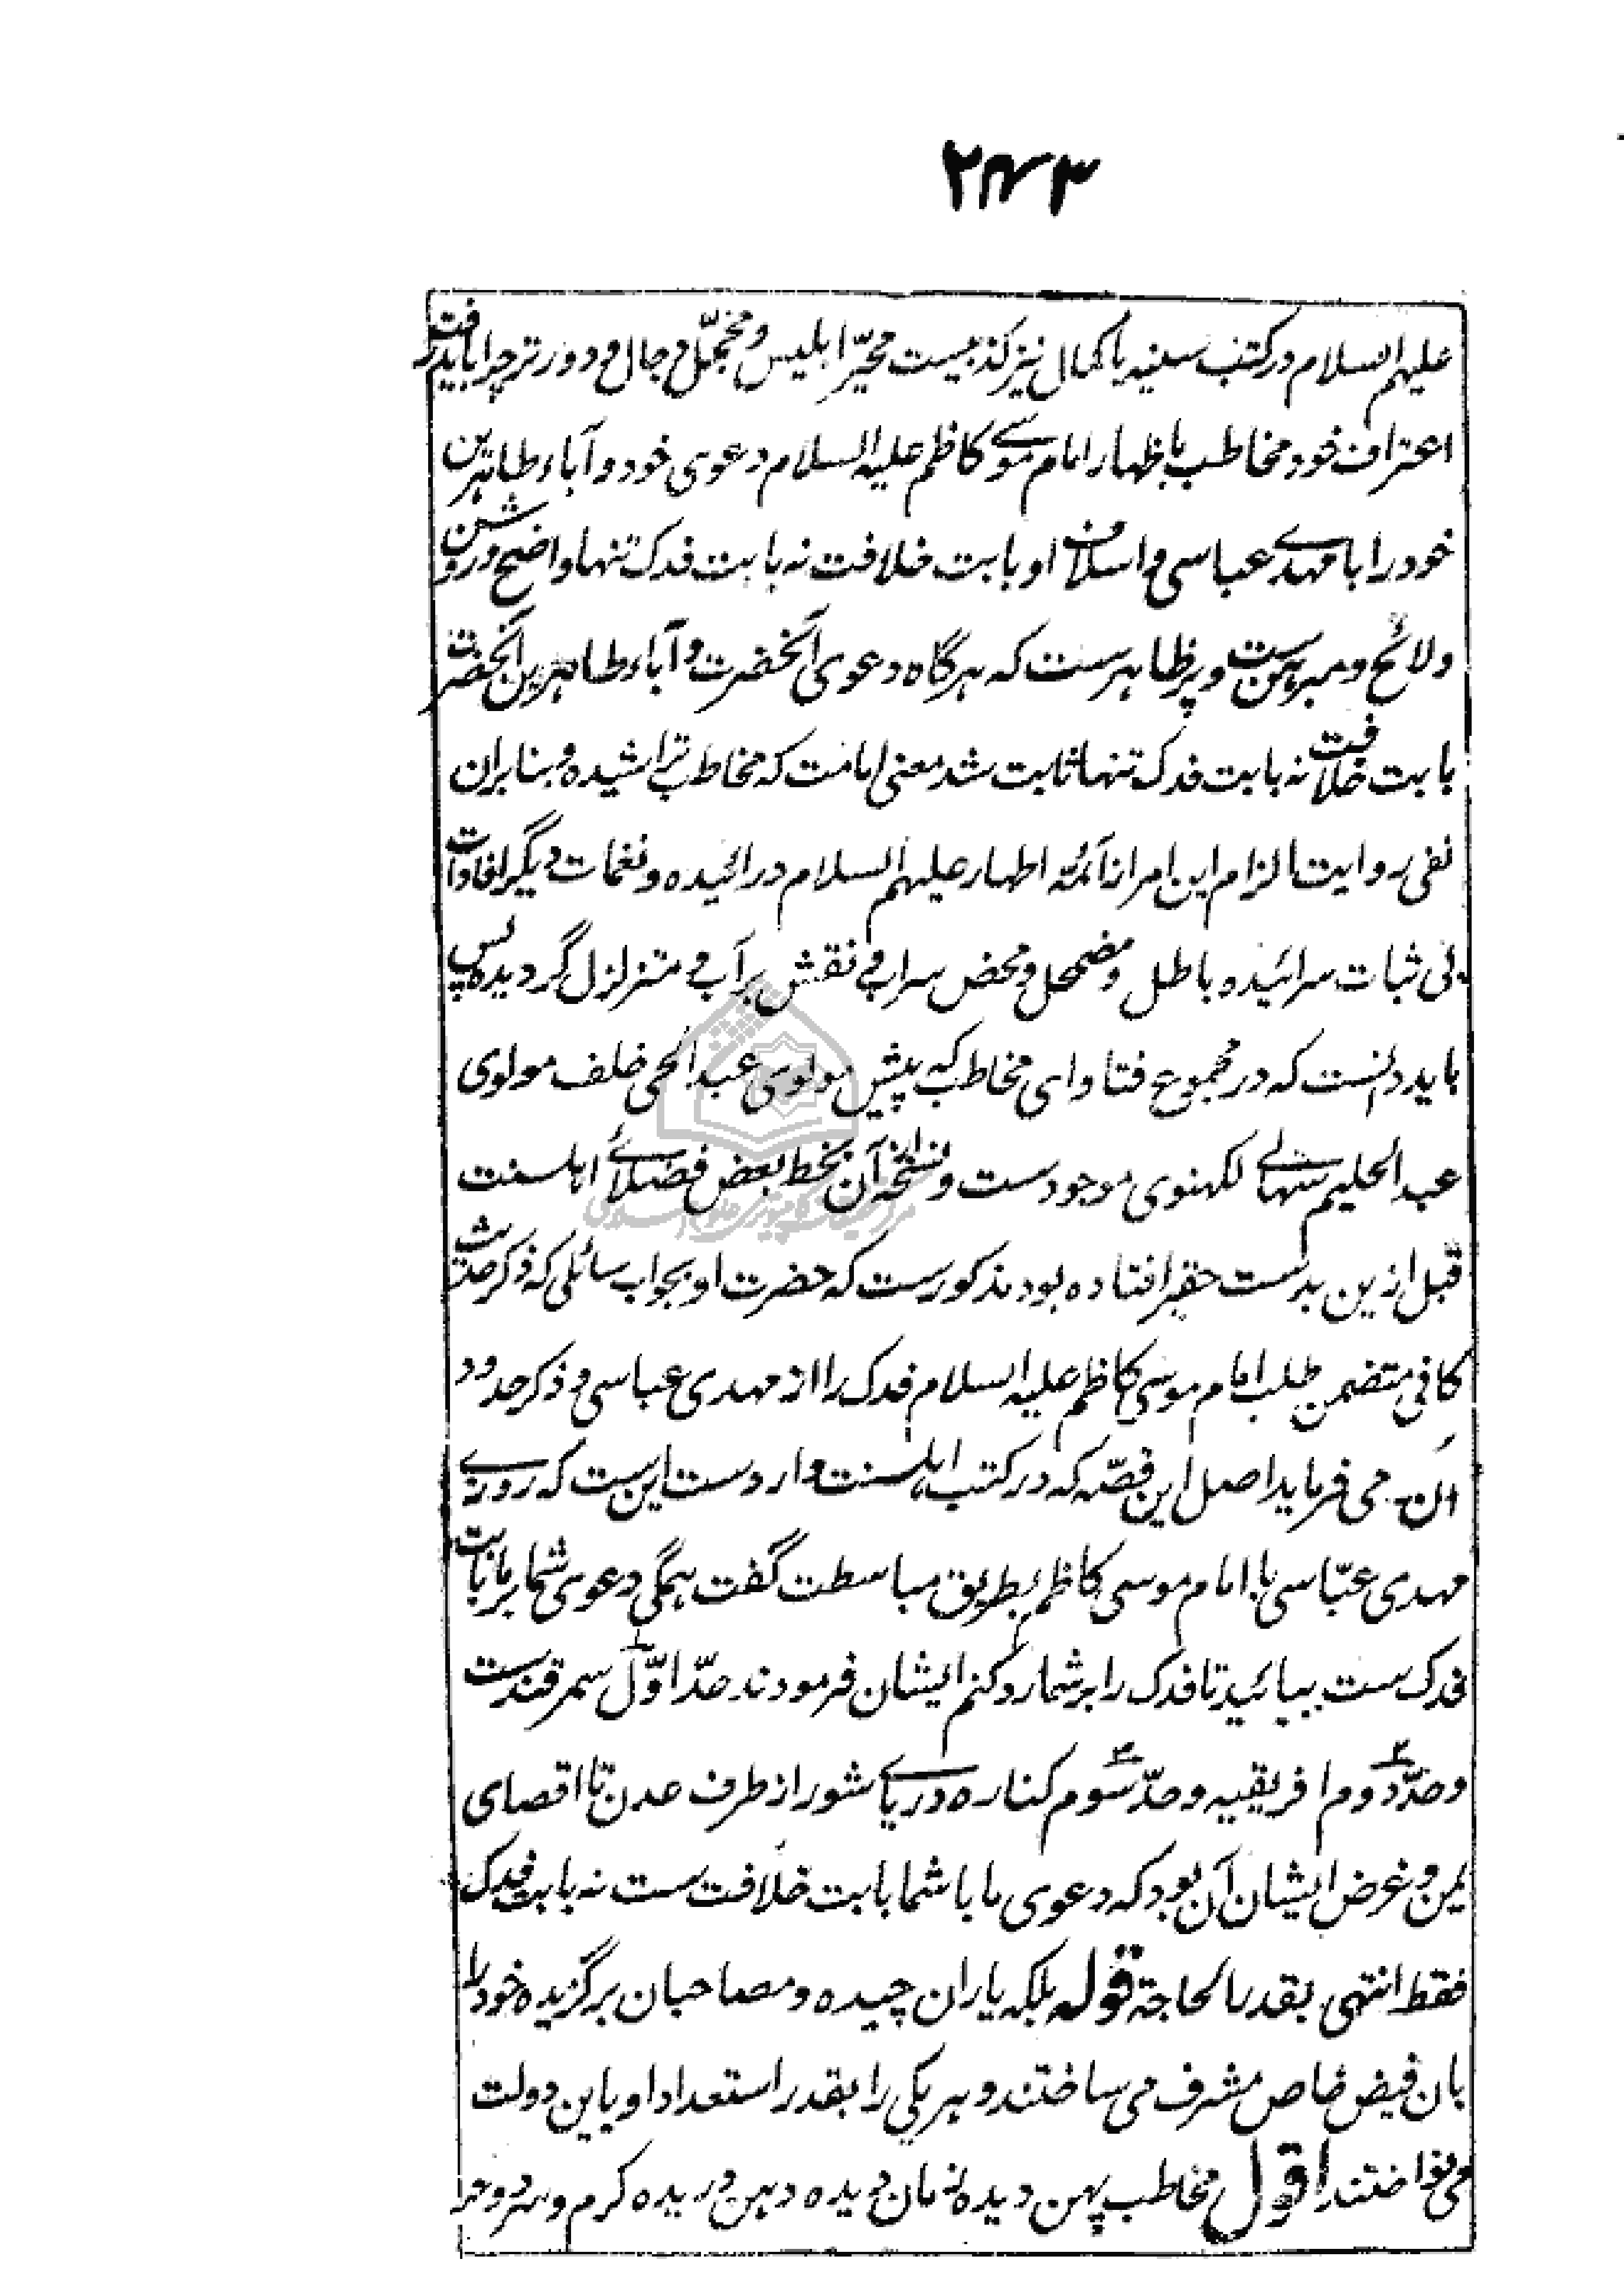 ۲۸۳
علیهم السلام در کتب سنیه با کمال نیز کذبیست محیّر ابلیس و مخجل دجال و دورتر چرا باید رفت
اعتراف خود مخاطب باظهار امام موسی کاظم علیه السلام دعوی خود و آباء طاهرین
خود را با مهدی عباسی و اسلاف او بابت خلافت نه بابت فدک تنها واضح و روشن
و لائح و مبرهن ست و پر ظاهرست که هرگاه دعوی آنحضرت و آباء طاهرین آنحضرت
بابت خلافت نه بابت فدک تنها ثابت شد معنی امامت که مخاطب تراشیده و بنا بران
نفی روایت الزام این امر از ائمّه اطهار علیهم السلام درائیده و نغمات دیگر افادات
بی ثبات سرائیده باطل و مضمحل و محض سراب و نقش بر آب و متزلزل گردیده پس
باید دانست که در مجموع فتاوای مخاطب که پیش مولوی عبد الحی خلف مولوی
عبد الحلیم سهالی لکهنوی موجودست و نسخه آن بخط بعض فضلای اهلسنت
قبل ازین بدست حقیر افتاده بود مذکورست که حضرت او بجواب سائلی که ذکر حدیث
کافی متضمن طلب امام موسی کاظم علیه السلام فدک را از مهدی عباسی و ذکر حدود
آن می فرماید اصل این قصّه که در کتب اهلسنت وارد ست این ست که روزے
مهدی عبّاسی با امام موسی کاظم بطریق مباسطت گفت همگی دعوی شما بر ما بابت
فدک ست بیائید تا فدک را بر شما رد کنم ایشان فرمودند حدّ اوّل سمرقندست
و حدّ دوم افریقیه و حدّ سوم کناره دریاے شور از طرف عدن تا اقصای
یمن و غرض ایشان آن بود که دعوی ما با شما بابت خلافت ست نه بابت فدک
فقط انتهی بقدر الحاجة قوله بلکه یاران چیده و مصاحبان برگزیده خود را
بان فیض خاص مشرف می ساختند و هر یکی را بقدر استعداد او باین دولت
می نواختند اقول مخاطب پهن دیده زمان دیده دهن دریده کرم و سرد